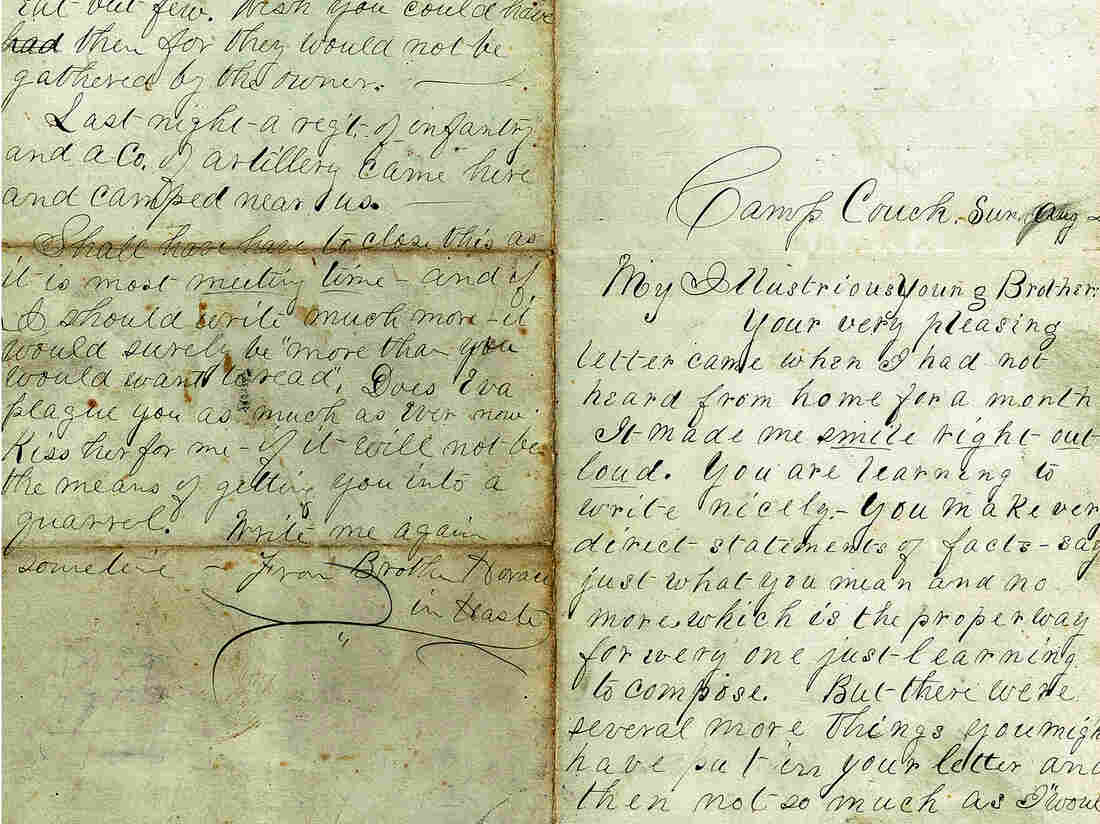 but few. Wish you could have
had them for they would not be
gathered by the owner.
Last night a regt. of infantry
and a Co. of artillery came here
and camped near us.
Shall have have to close this as
it is most meeting time and if
I should write much more it
would surely be "more than you
would want to read". Does Eva
plague you as much as ever now
Kiss her for me - if it will not be
the means of getting you into a
quarrel. Write me again
sometime - From Brother Horace
in Haste
Camp Couch. Sun. Aug
My Illustrious Young Brother.
Your very pleasing
letter came when I had not
heard from home for a month
It made me smile right out
loud. You are learning to
write nicely. - You make ver
direct statements of facts - say
just what you mean and no
more. which is the proper way
for wery one just learning
to compose. But there were
several more things you migh
have put in your letter and
then not so much as I woul